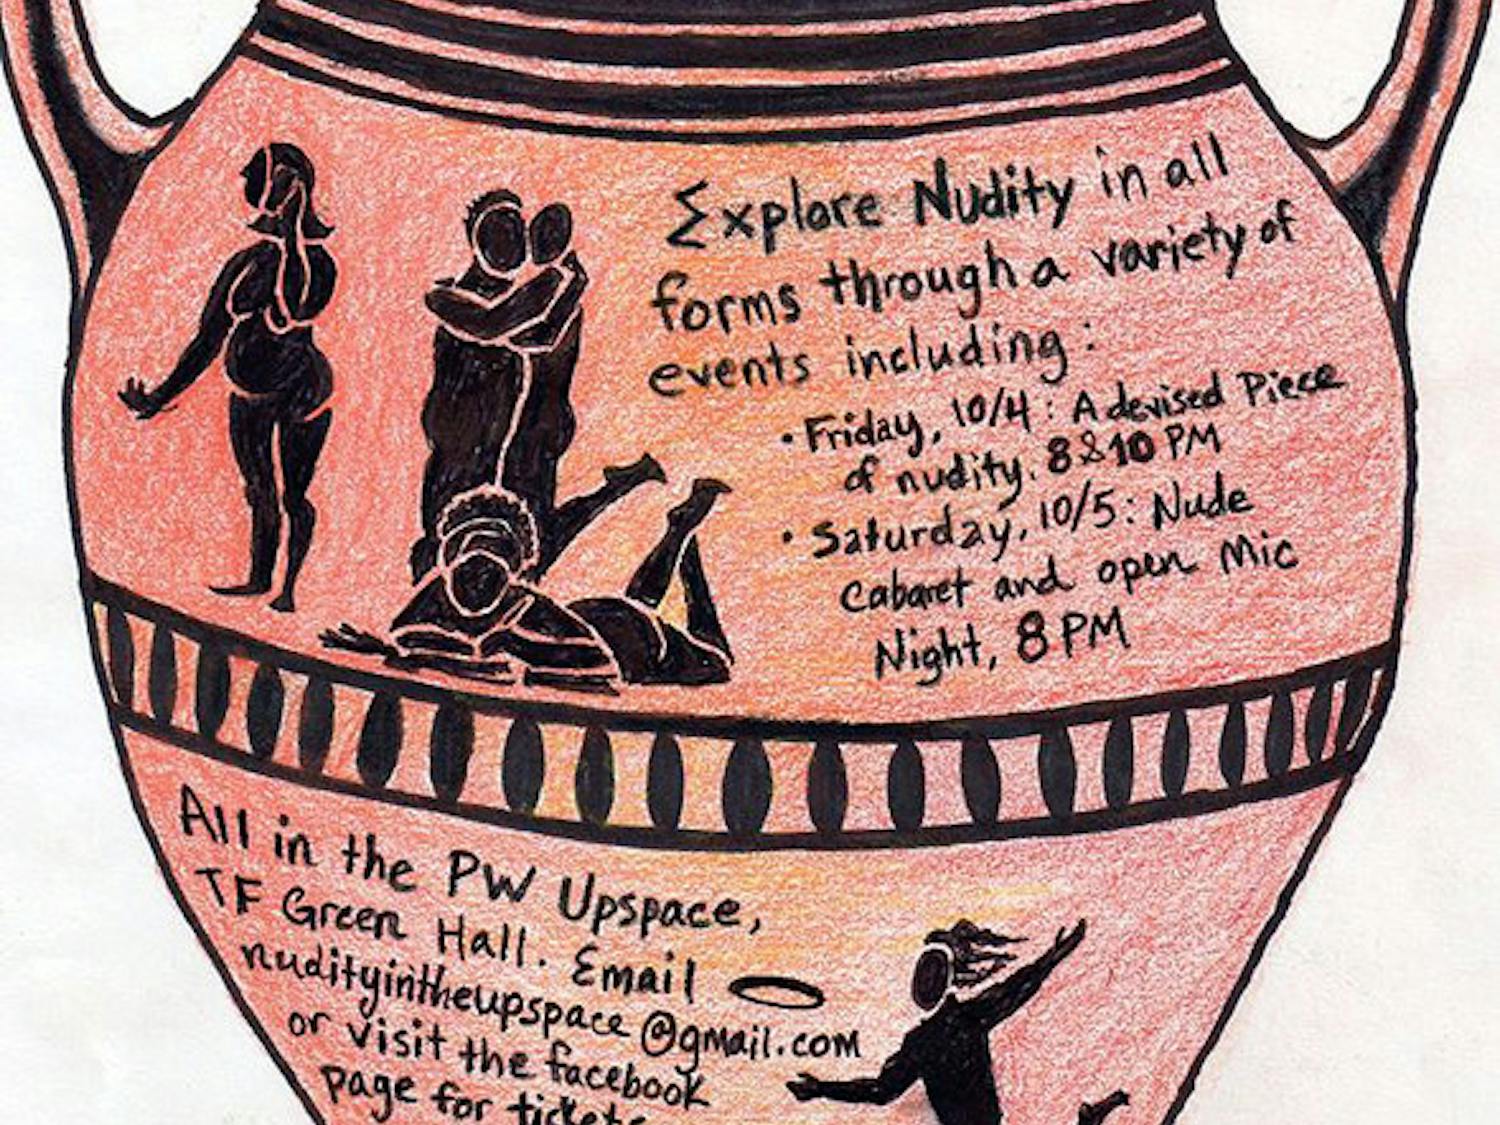 Explore Nudity in all
forms through a variety of
events including:
• Friday, 10/4: A devised Piece
of nudity. 8 & 10 PM
• Saturday, 10/5: Nude
Cabaret and open Mic
Night, 8 PM
All in the PW Upspace,
TF Green Hall. Email
nudityintheupspace@gmail.com
or visit the facebook
page for tickets